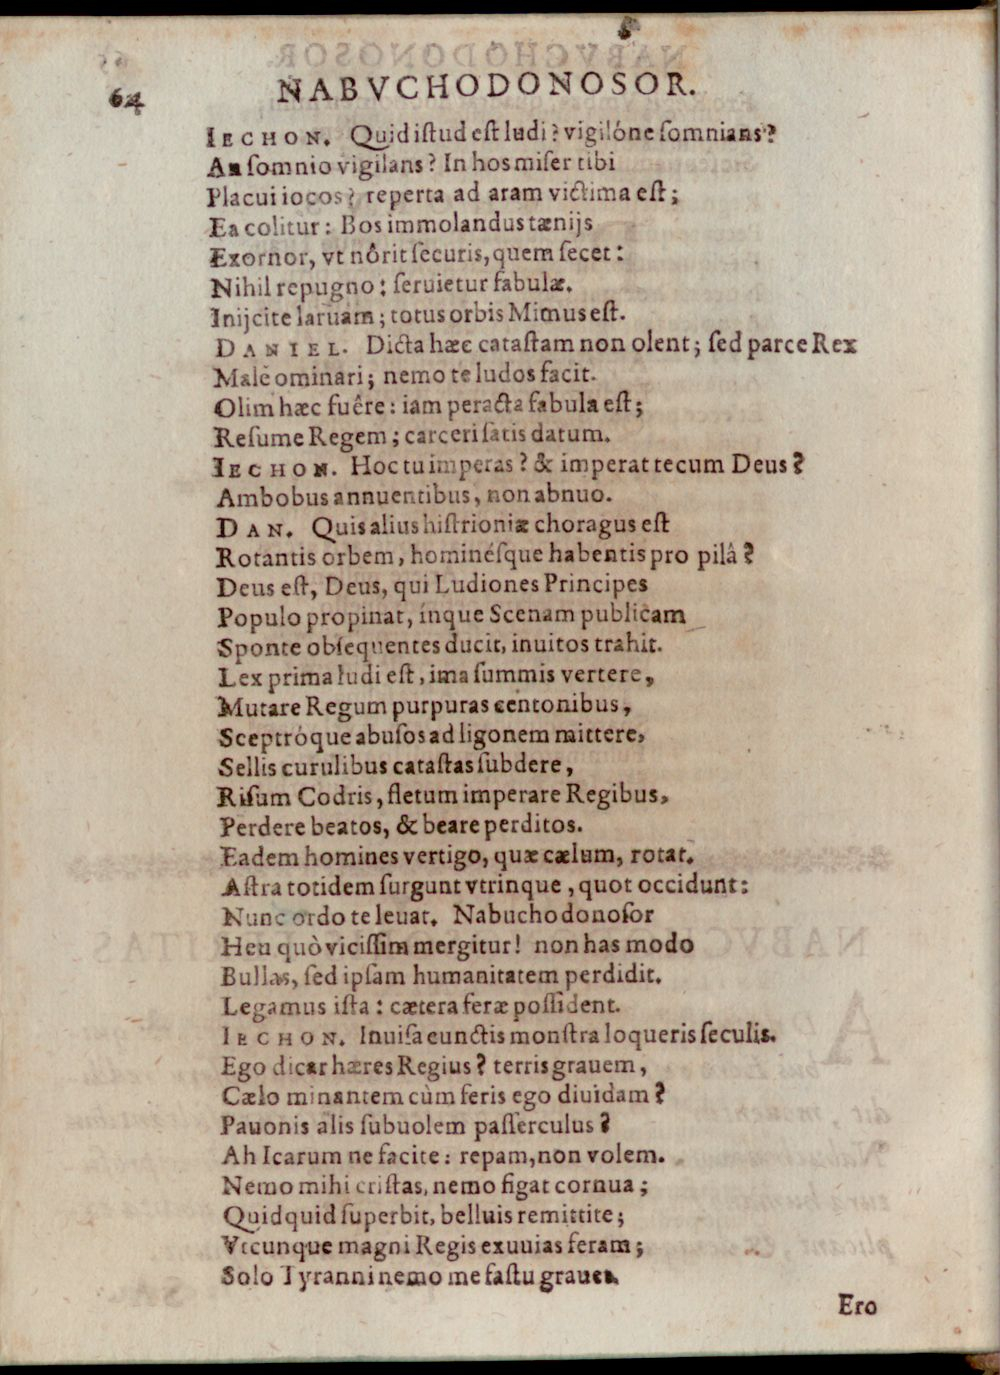 64
NABVCHODONOSOR.
IECHON. Quid iſtud eſt ludi? vigilóne ſomnians?
An ſomnio vigilans? In hos miſer tibi
Placui iocos? reperta ad aram victima eſt;
Ea colitur: Bos immolandus tænijs
Exornor, vt nôrit ſecuris, quem ſecet:
Nihil repugno: ſeruietur fabulæ.
Inijcite laruam; totus orbis Mimus eſt.
DANIEL. Dicta hæc cataſtam non olent; ſed parce Rex
Malè ominari; nemo te ludos facit.
Olim hæc fuêre: iam peracta fabula eſt;
Reſume Regem; carceri ſatis datum.
IECHON. Hoc tu imperas? & imperat tecum Deus?
Ambobus annuentibus, non abnuo.
DAN. Quis alius hiſtrioniæ choragus eſt
Rotantis orbem, hominéſque habentis pro pilâ?
Deus eſt, Deus, qui Ludiones Principes
Populo propinat, inque Scenam publicam
Sponte obſequentes ducit, inuitos trahit.
Lex prima ludi eſt, ima ſummis vertere,
Mutare Regum purpuras centonibus,
Sceptróque abuſos ad ligonem mittere,
Sellis curulibus cataſtas ſubdere,
Riſum Codris, fletum imperare Regibus,
Perdere beatos, & beare perditos.
Eadem homines vertigo, quæ cælum, rotat.
Aſtra totidem ſurgunt vtrinque, quot occidunt:
Nunc ordo te leuat. Nabuchodonoſor
Heu quò viciſſim mergitur! non has modo
Bullas, ſed ipſam humanitatem perdidit.
Legamus iſta: cætera feræ poſſident.
IECHON. Inuiſa cunctis monſtra loqueris ſeculis.
Ego dicar hæres Regius? terris grauem,
Cælo minantem cùm feris ego diuidam?
Pauonis alis ſubuolem paſſerculus?
Ah Icarum ne facite: repam, non volem.
Nemo mihi criſtas, nemo figat cornua;
Quidquid ſuperbit, belluis remittite;
Vtcunque magni Regis exuuias feram;
Solo Tyranni nemo me faſtu grauet.
Ero